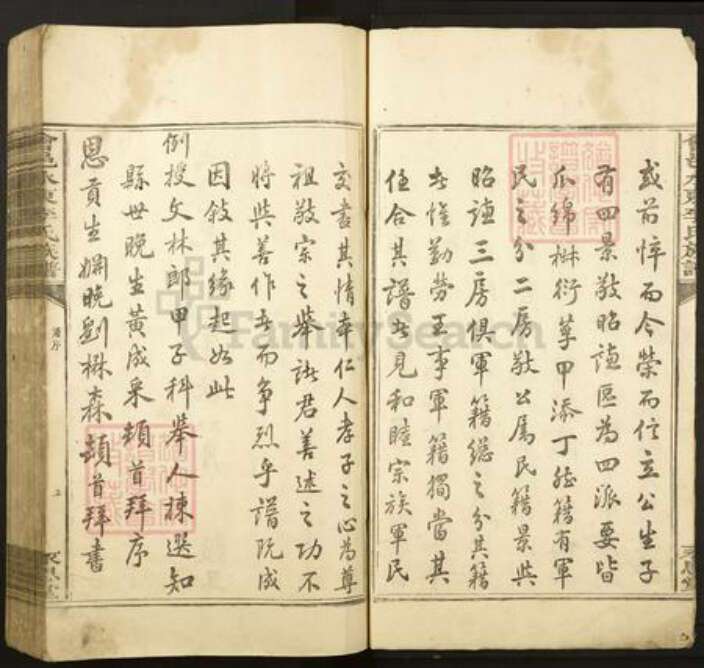 或前悴而今榮而信立公生子
有四景敬昭謹區為四派要皆
瓜綿椒衍草甲添丁然籍有軍
民之分二房敬公屬民籍景與
昭謹三房俱軍籍總之分其籍
者惟勤勞王事軍籍獨當其
任合其譜者見和睦宗族軍民
交盡其情本仁人孝子之心為尊
祖敬宗之舉諸君善述之功不
將與善作者而爭烈乎譜既成
因敘其緣起如此
例授文林郎甲子科舉人揀選知
縣世晚生黃成采頓首拜序
恩貢生姻晚劉楙森頓首拜書
會邑水東李氏族譜
FamilySearch